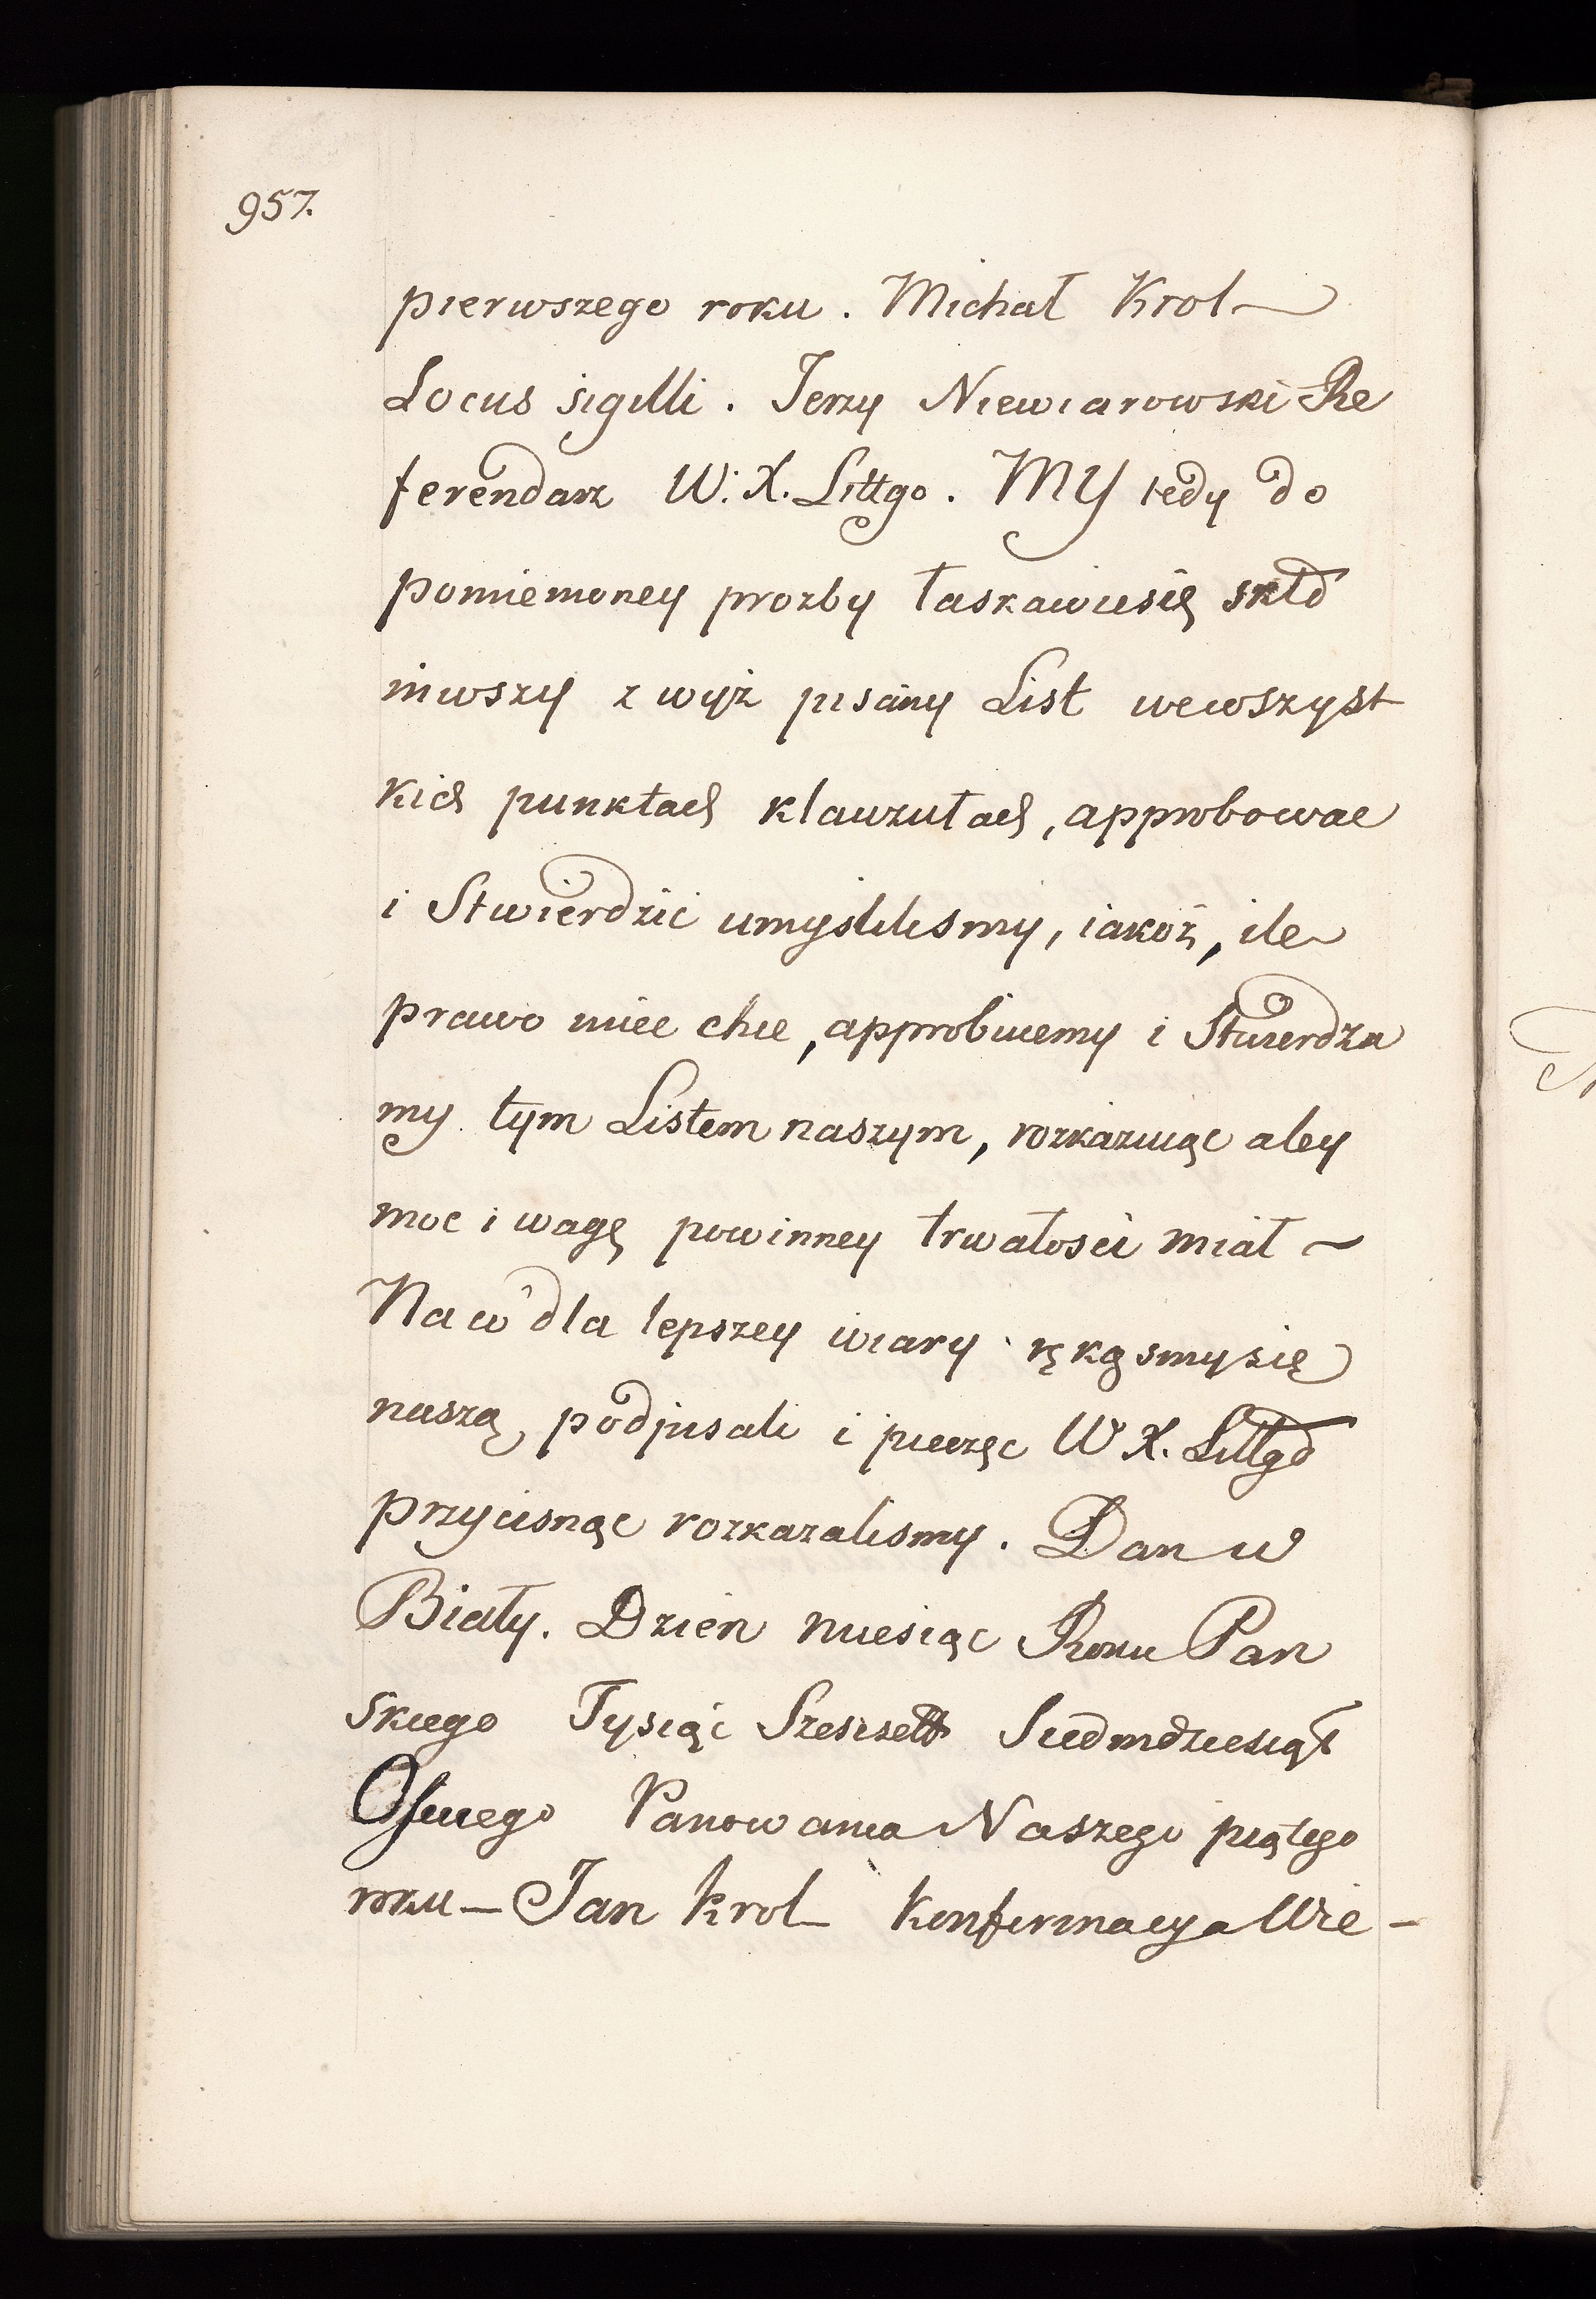 957.
pierwszego roku. Michał Krol
Locus sigilli. Jerzy Niewiarowski Re
ferendarz W. X. Littgo. MY tedy do
pomiemoney prozby łaskawiesię skło
niwszy zwyż pisany List wewszyst
kich punktach klauzułach, approbowac
i Stwierdzic umyslilismy, iakoż, ile
prawo miec chce, approbuiemy i Stwierdza
my tym Listem naszym, rozkazuiąc abey
moc i wagę powinney trwałosci miał
Na co dla lepszey wiary ręką smysię
naszą podpisali i pieczęc W X. Littgo
przycisnąc rozkazalismy. Dan w
Biały. Dzien miesiąc Roku Pan
skiego Tysiąc Szescsett Siedmdziesiąt
Osmego Panowania Naszego piątego
roku — Jan Krol Konfirmacya Wie-